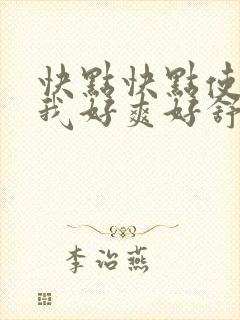 快點快點使
我好爽好舒
李治燕